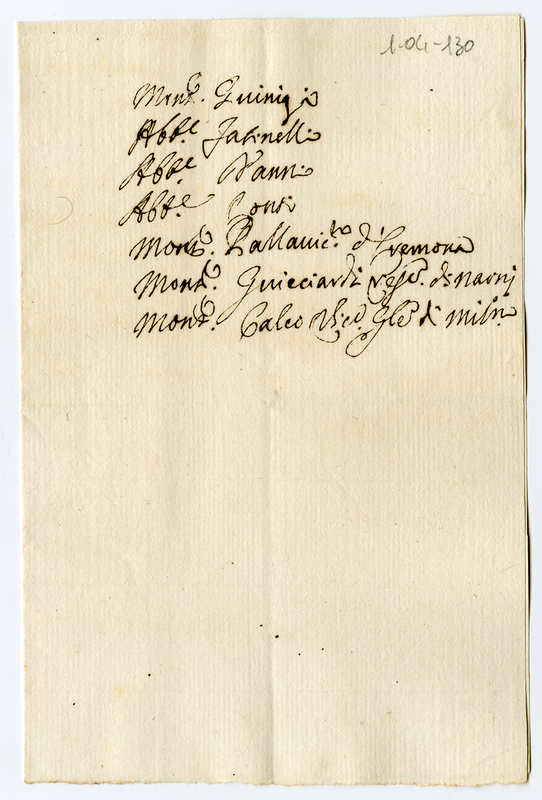 1-04-130
Mons.r Guinigi
Abb.e Fatinelli
Abb.e Vanni
Abb.e Conti
Mons.r Pallavic.no d'Cremona
Mons.r Guicciardi Vesc.o di Narni
Mons.r Calco Vic.o Gle di Mil.no